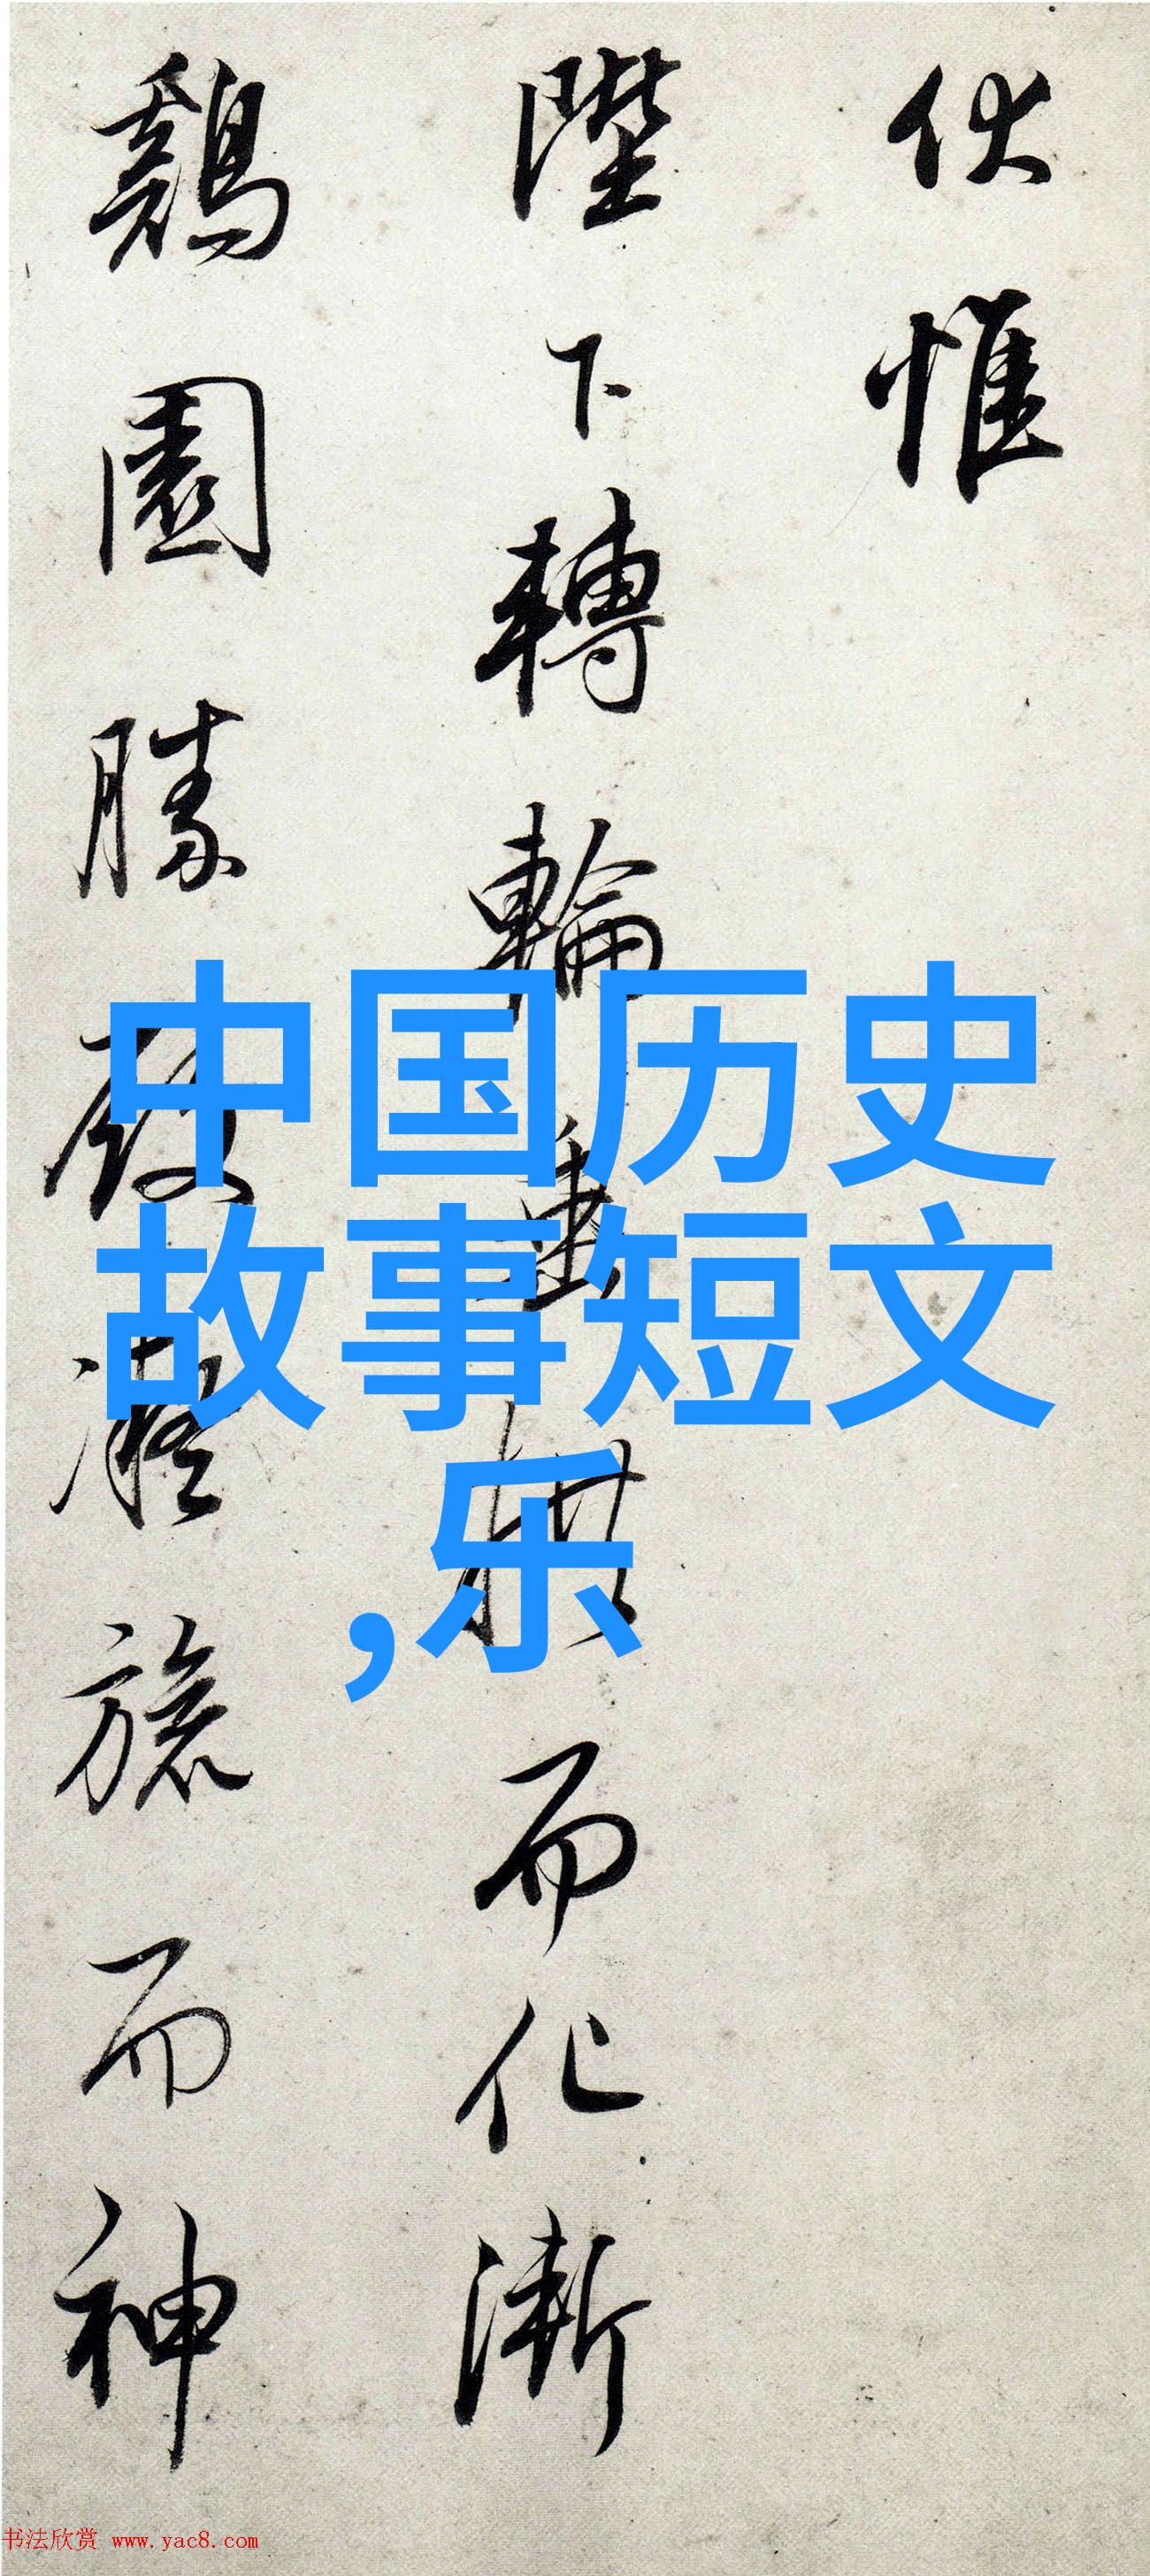 伏惟
陛下轉輪垂拱而化漸
鷄園勝殿凝旒而神
中国历史
故事短文
,乐
书法欣赏 www.yac8.com